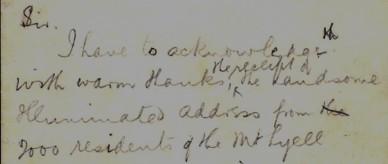 Sir.
I have to acknowledge
the receipt of
with warm thanks, the handsome
Illuminated address from the
residents of the Mt Lyell